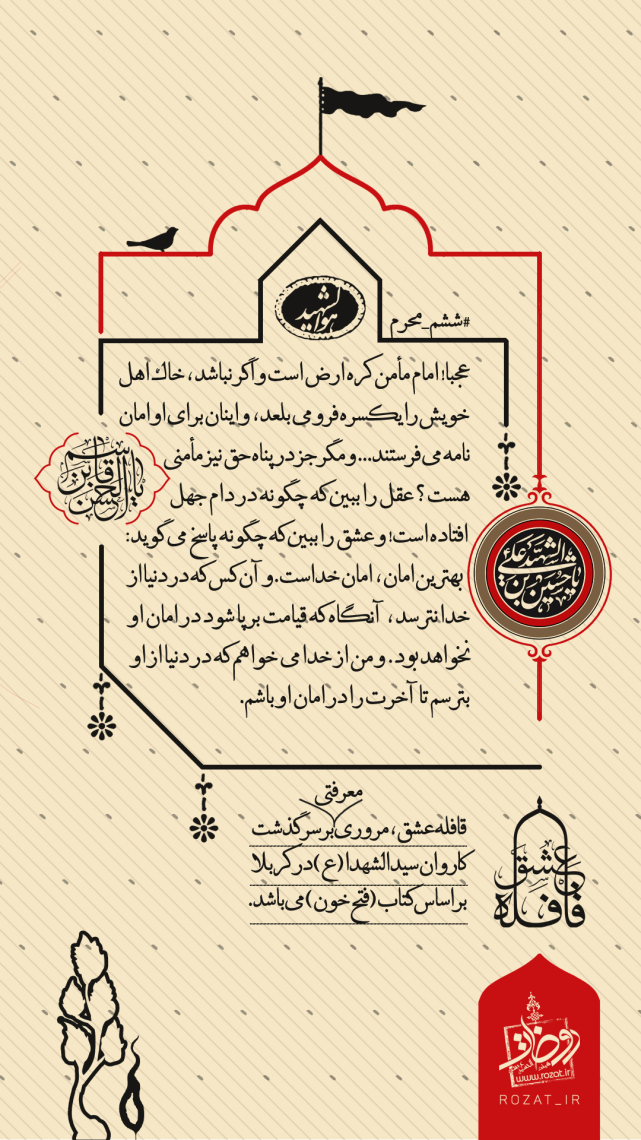 هوالشهید
#ششم_محرم
عجبا! امام مأمن کره ارض است و اگر نباشد، خاک اهل
خویش را یکسره فرو می بلعد، و اینان برای او امان
نامه می فرستند... و مگر جز در پناه حق نیز مأمنی
هست؟ عقل را ببین که چگونه در دام جهل
افتاده است! و عشق را ببین که چگونه پاسخ می گوید:
بهترین امان، امان خداست. و آن کس که در دنیا از
خدا نترسد، آنگاه که قیامت بر پا شود در امان او
نخواهد بود. و من از خدا می خواهم که در دنیا از او
بترسم تا آخرت را در امان او باشم.
یا قاسم بن الحسن
یا حسین بن علی الشهید
معرفتی
قافله عشق، مروری بر سرگذشت
کاروان سیدالشهدا (ع) در کربلا
بر اساس کتاب (فتح خون) می باشد.
قافله عشق
روضات
www.rozat.ir
ROZAT_IR